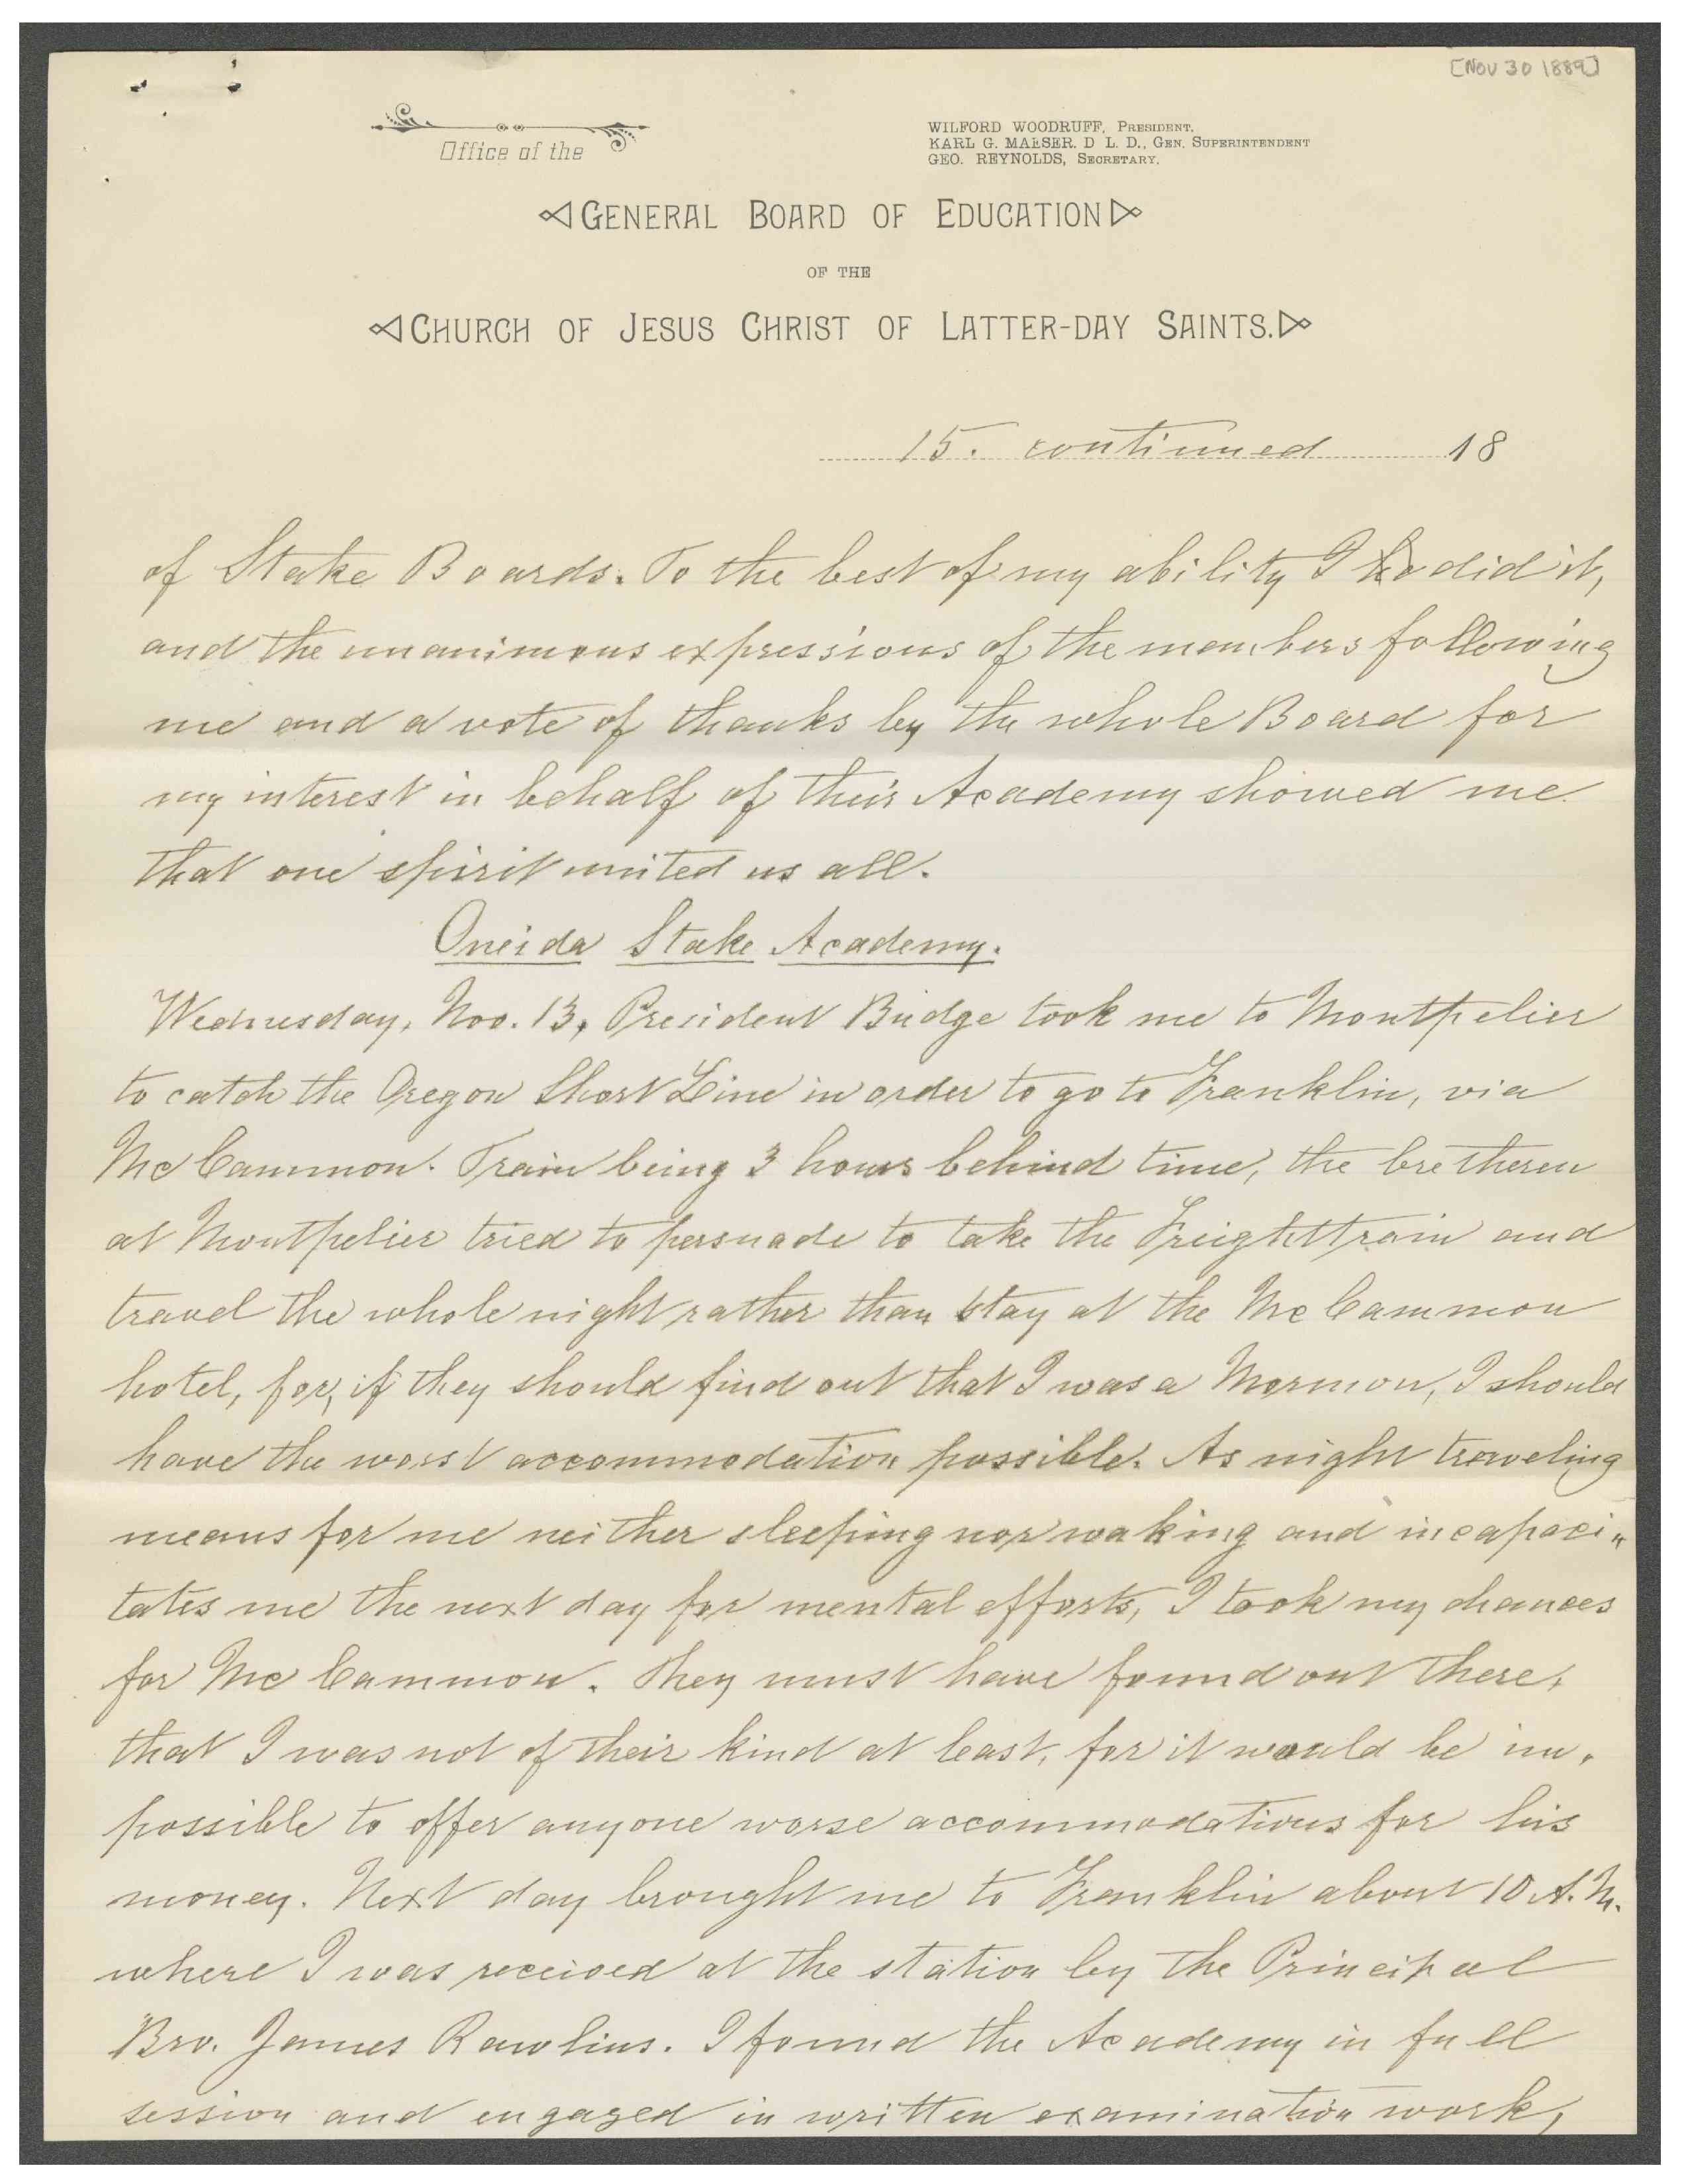 [NOV 30 1889]
Office of the
WILFORD WOODRUFF, PRESIDENT.
KARL G. MAESER. D L. D., GEN. SUPERINTENDENT
GEO. REYNOLDS, SECRETARY.
GENERAL BOARD OF EDUCATION
OF THE
CHURCH OF JESUS CHRIST OF LATTER-DAY SAINTS.
15. continued 18
of Stake Boards. To the best of my ability I did it,
and the unanimous expressions of the members following
me and a vote of thanks by the whole Board for
my interest in behalf of their Academy showed me
that one spirit united us all.
Oneida Stake Academy.
Wednesday, Nov. 13, President Budge took me to Montpelier
to catch the Oregon Short Line in order to go to Franklin, via
McCammon. Train being 3 hours behind time, the bretheren
at Montpelier tried to persuade to take the Freighttrain and
travel the whole night rather than stay at the McCammon
hotel, for, if they should find out that I was a Mormon, I should
have the worst accommodation possible. As night traveling
means for me neither sleeping nor waking and incapaci-
tates me the next day for mental efforts, I took my chances
for McCammon. They must have found out there,
that I was not of their kind at least, for it would be im-
possible to offer anyone worse accommodations for his
money. Next day brought me to Franklin about 10 A.M.
where I was received at the station by the Principal
Bro. James Rawlins. I found the Academy in full
session and engaged in written examination work,